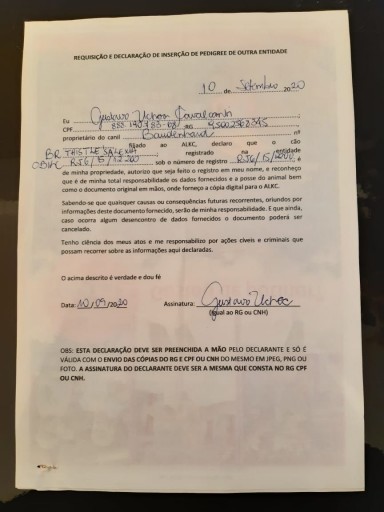 REQUISIÇÃO E DECLARAÇÃO DE INSERÇÃO DE PEDIGREE DE OUTRA ENTIDADE
10 de Setembro 2020
Eu Gustavo Uchoa Cavalcanti ,
CPF ou ,
proprietário do canil nº
filiado ao ALKC, declaro que o cão
BR registrado na entidade
sob o número de registro é
de minha propriedade, autorizo que seja feito o registro em meu nome, e reconheço
que é de minha total responsabilidade os dados fornecidos e a posse do animal bem
como o documento original em mãos, onde forneço a cópia digital para o ALKC.
Sabendo-se que quaisquer causas ou consequências futuras recorrentes, oriundos por
informações deste documento fornecido, serão de minha responsabilidade. E que ainda,
caso ocorra algum desencontro de dados fornecidos o documento poderá ser
cancelado.
Tenho ciência dos meus atos e me responsabilizo por ações cíveis e criminais que
possam recorrer sobre as informações aqui declaradas.
O acima descrito é verdade e dou fé
Data: 10/09/2020 Assinatura: Gustavo Uchoa
(Igual ao RG ou CNH)
OBS: ESTA DECLARAÇÃO DEVE SER PREENCHIDA A MÃO PELO DECLARANTE E SÓ É
VÁLIDA COM O ENVIO DAS CÓPIAS DO RG E CPF OU CNH DO MESMO EM JPEG, PNG OU
FOTO. A ASSINATURA DO DECLARANTE DEVE SER A MESMA QUE CONSTA NO RG CPF
OU CNH.